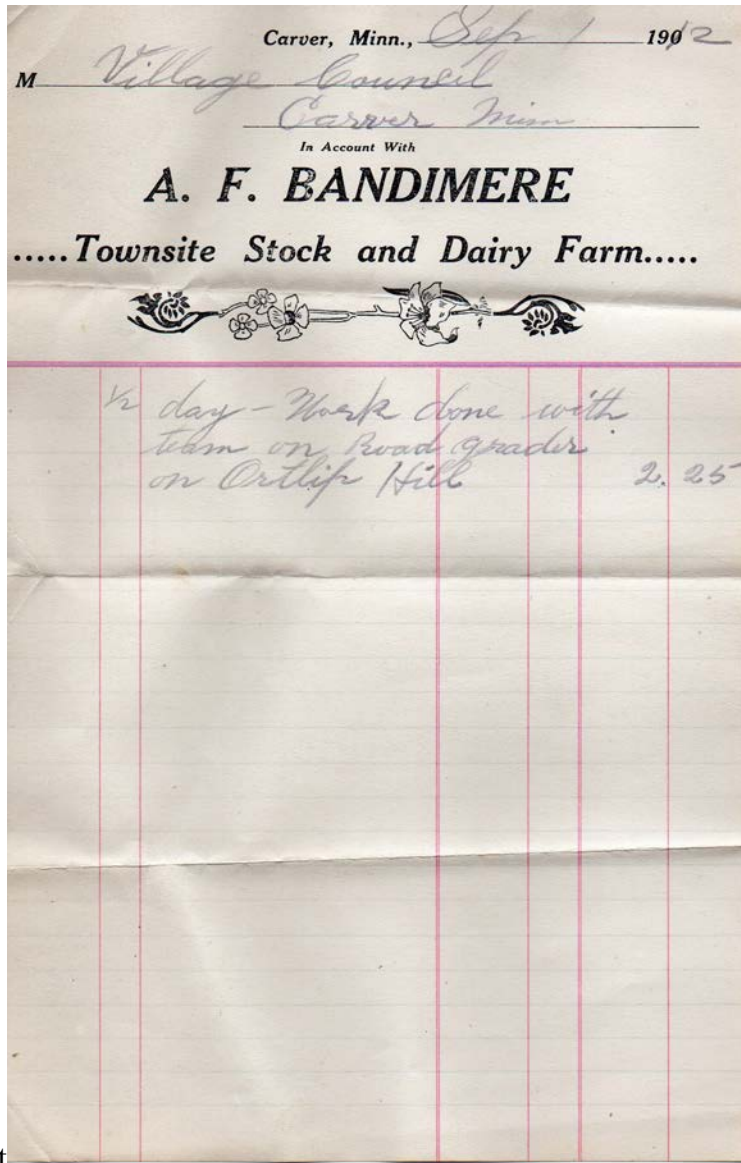 Carver, Minn., Sep 1 1912
M Village Council
Carver Minn
In Account With
A. F. BANDIMERE
.....Townsite Stock and Dairy Farm.....
1/2 day - Work done with
team on Road grader
on Ortlip Hill 2.25
t